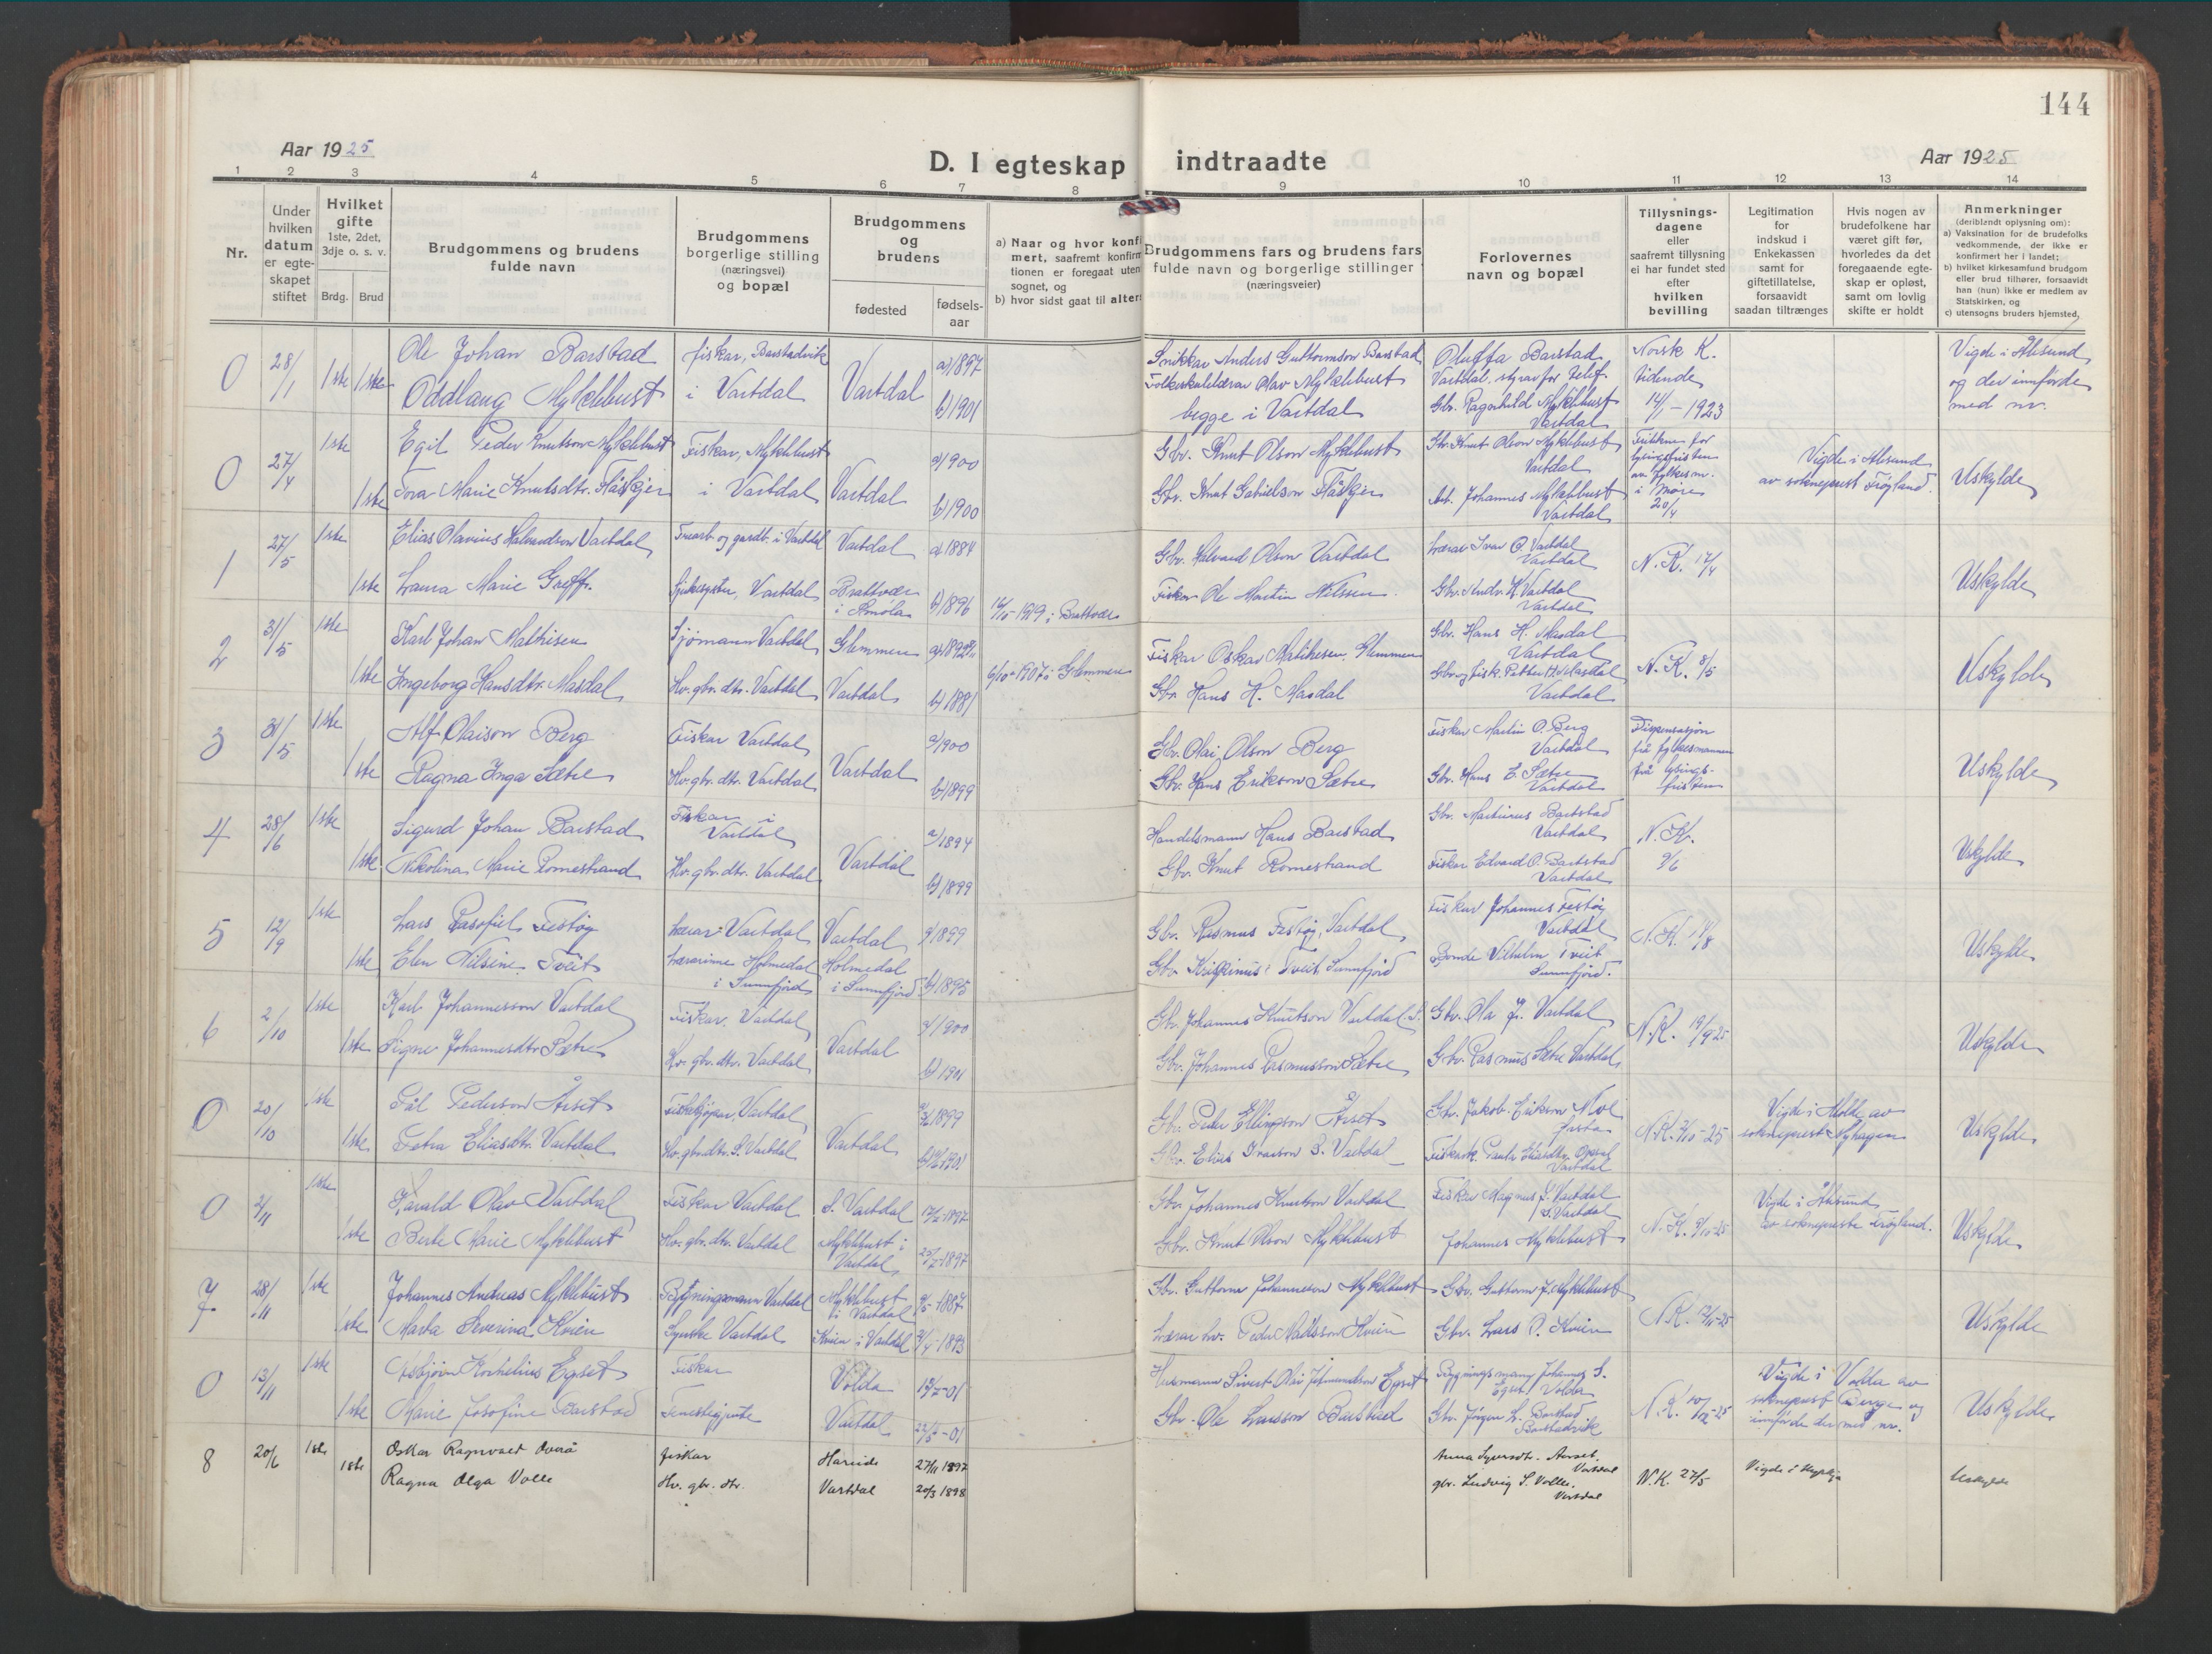 144
Aar 1925
D. I egteskap indtraadte
Aar 1925
1 2 3 4 5 6 7 8 9 10 11 12 13 14
Nr.
Under hvilken datum er egte-skapet stiftet
Hvilket gifte 1ste, 2det, 3dje o. s. v.
Brdg. Brud
Brudgommens og brudens fulde navn
Brudgommens borgerlige stilling (næringsvei) og bopæl
Brudgommens og brudens
fødested
fødsels-aar
a) Naar og hvor konfi
mert, saafremt konfirm
tionen er foregaat uten
sognet, og
b) hvor sidst gaat til alter
Brudgommens fars og brudens fars fulde navn og borgerlige stillinger (næringsveier)
Forlovernes navn og bopæl
Tillysnings-dagene eller saafremt tillysning ei har fundet sted efter hvilken bevilling
Legitimation for indskud i Enkekassen samt for giftetillatelse, forsaavidt saadan tiltrænges
Hvis nogen av brudefolkene har været gift før, hvorledes da det foregaaende egte-skap er opløst, samt om lovlig skifte er holdt
Anmerkninger
(deriblandt oplysning om):
a) Vaksination for de brudefolks vedkommende, der ikke er konfirmert her i landet;
b) hvilket kirkesamfund brudgom eller brud tilhører, forsaavidt han (hun) ikke er medlem av Statskirken, og
c) utensogns bruders hjemsted.
0 28/1 1ste 1ste Ole Johan Barstad fiskar, Barstadvik a) 1897 Snikkar Anders Guttormson Barstad Oluffa Barstad Norsk K. Vigde i Ålesund
Oddlaug Myklebust i Vartdal Vartdal b) 1901 Folkeskulelærar Olav Myklebust Vartdal, styrar for telef. tidende og der innførde
begge i Vartdal Gbr. Ragnhild Myklebust Vartdal 14/1-1923 med nr.
0 27/4 1ste Egil Peder Knutson Myklebust Fiskar, Myklebust a) 1900 Gbr. Knut Olson Myklebust Gbr. Knut Olson Myklebust Vartdal Vigde i Ålesund
1ste Tora Marie Knutsdtr. Flåskjer i Vartdal Vartdal b) 1900 Gbr. Knut Gabrielson Flåskjer Arb. Johannes Myklebust Vartdal i Møre 20/4 av sokneprest Frøgland. Uskylde
1 27/5 1ste Elias Olavius Halvardson Vartdal og gardb. i Vartdal Vartdal a) 1884 Gbr. Halvard Olson Vartdal Lærar Ivar O. Vartdal Vartdal N. K. 17/4
1ste Laura Marie Greff. Sjukesyster, Vartdal Brattvær i Smøla b) 1896 1919 i Brattvær Fiskar Ole Martin Nilssen Gbr. Andr. H. Vartdal Vartdal Uskylde
2 31/5 1ste Karl Johan Mathisen Sjømann Vartdal Glemmen a) 1892 1907 i Glemmen Fiskar Oskar Mathisen, Glemmen Gbr. Hans H. Masdal Vartdal N. K. 8/5
1ste Ingeborg Hansdtr. Masdal Hv. gbr. dtr. Vartdal Vartdal b) 1881 Gbr. Hans H. Masdal Gbr. og fisk. Petter H. Masdal Vartdal Uskylde
3 31/5 1ste Alf Olaison Berg Fiskar Vartdal a) 1900 Gbr. Olai Olson Berg Fiskar Martin O. Berg Vartdal Dispensasjon frå fylkesmannen
1ste Ragna Inga Sætre Hv. gbr. dtr. Vartdal Vartdal b) 1899 Gbr. Hans Erikson Sætre Gbr. Hans E. Sætre Vartdal frå lysings-fristen Uskylde
4 28/6 1ste Sigurd Johan Barstad Fiskar i Vartdal a) 1894 Handelsmann Hans Barstad Gbr. Martinus Barstad Vartdal N. K.
1ste Nikolina Marie Romestrand Hv. gbr. dtr. Vartdal Vartdal b) 1899 Gbr. Knut Romestrand Fiskar Edvard O. Barstad Vartdal 9/6 Uskylde
5 12/9 1ste Lars Festøy Lærar Vartdal Vartdal a) 1899 Gbr. Rasmus Festøy, Vartdal Fiskar Johannes Festøy Vartdal N. K. /8
1ste Elen Nilsine Tveit Lærarinne Holmedal i Sunnfjord Holmedal i Sunnfjord b) 1895 Gbr. Tveit, Sunnfjord Bonde Vilhelm Tveit Sunnfjord. Uskylde
6 2/10 1ste Karl Johannesson Vartdal Fiskar. Vartdal a) 1900 Gbr. Johannes Knutson Vartdal S. Gbr. Ola J. Vartdal N. K. 19/9-25
1ste Signe Johannesdtr. Sætre Hv. gbr. dtr. Vartdal Vartdal b) 1901 Gbr. Johannes Rasmusson Sætre Gbr. Rasmus Sætre Vartdal Uskylde
0 20/10 1ste Pål Pederson Årset Fiskekjøpar, Vartdal 1899 Gbr. Peder Ellingson Årset Gbr. Jakob Erikson N. K. -25 Vigde i Molde av
1ste Petra Eliasdtr. Vartdal Hv. gbr. dtr. S. Vartdal Vartdal 1901 Gbr. Elias Ivarson S. Vartdal Vartdal sokneprest Nyhagen Uskylde
0 2/11 1ste Harald Olav Vartdal Fiskar Vartdal S. Vartdal 1897 Gbr. Johannes Knutson Vartdal Fiskar Magnus J. Vartdal S. Vartdal N. K. -25 Vigde i Ålesund
1ste Berte Marie Myklebust Hv. gbr. dtr. Vartdal Myklebust i Vartdal 1897 Gbr. Knut Olson Myklebust Johannes Myklebust av sokneprest Frøgland. Uskylde
7 28/11 1ste Johannes Andreas Myklebust Bygningsmann Vartdal Myklebust i Vartdal 1887 Gbr. Guttorm Johannesson Myklebust Gbr. Guttorm J. Myklebust N. K. -25
1ste Marta Severina Kvien Vartdal Kvien i Vartdal 1893 Lærar Peder Kvien Gbr. Lars P. Kvien Uskylde
0 13/11 1ste Asbjørn Kornelius Egset Fiskar Volda -01 Husmann Sivert Olai Egset Bygningsmann Johannes S. Egset, Volda N. K. -25 Vigde i Volda av
1ste Marie Josofine Barstad Vartdal -01 Gbr. Ole Larsson Barstad Gbr. Jørgen L. Barstad Barstadvik sokneprest Berge og innførde der med nr. Uskylde
8 20/6 1ste Oskar Ragnvald Overå fiskar Hareid 27/11 1897 Anna Syversdtr. Aarset, Vartdal N. K. 27/5 Vigde i kyrkja Uskylde
1ste Ragna Olga Volle Hv. gbr. dtr. Vartdal 20/3 1898 gbr. Ludvig S. Volle, Vartdal